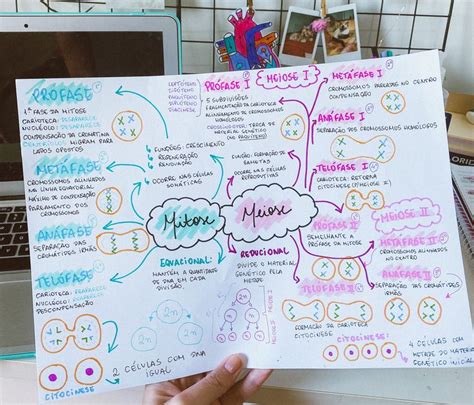 PRÓFASE
1ª FASE DA MITOSE
CARIOTECA: DESAPARECE
NUCLÉOLO: DESAPARECE
CONDENSAÇÃO DA CROMATINA
CENTRÍOLOS MIGRAM PARA
LADOS OPOSTOS
METÁFASE
CROMOSSOMOS ALINHADOS
NA LINHA EQUATORIAL
MÁXIMO DE CONDENSAÇÃO
PAREAMENTO DOS
CROMOSSOMOS
ANÁFASE
SEPARAÇÃO DAS
CROMÁTIDES IRMÃS
TELÓFASE
CARIOTECA:
NUCLÉOLO:
DESCONDENSAÇÃO
CITOCINESE
2 CÉLULAS COM DNA
IGUAL
FUNÇÕES: CRESCIMENTO
REGENERAÇÃO
RENOVAÇÃO
OCORRE NAS CÉLULAS
SOMÁTICAS
Mitose
EQUACIONAL:
MANTÉM A QUANTIDADE
DE DNA EM CADA
DIVISÃO.
2n
2n
2n
LEPTÓTENO
ZIGÓTENO
PAQUÍTENO
DIPLÓTENO
DIACINESE
PRÓFASE I
MEIOSE I
5 SUBDIVISÕES
FRAGMENTAÇÃO DA CARIOTECA
ALINHAMENTO DE CROMOSSOMOS
HOMÓLOGOS
CROSSING-OVER: TROCA DE
MATERIAL GENÉTICO
(NO PAQUÍTENO)
FUNÇÃO: FORMAÇÃO DE
GAMETAS
OCORRE NAS CÉLULAS
REPRODUTIVAS
Meiose
REDUCIONAL
DIVIDE O MATERIAL
GENÉTICO PELA
METADE
2n
n
n
MEIOSE I
MEIOSE II
METÁFASE I
CROMOSSOMOS PAREADOS NO CENTRO
CONDENSAÇÃO
ANÁFASE I
SEPARAÇÃO DOS CROMOSSOMOS HOMÓLOGOS
TELÓFASE I
CARIOTECA: REFORMA
CITOCINESE (1ª MEIOSE)
PRÓFASE II
SEMELHANTE A
PRÓFASE DA MITOSE
MEIOSE II
METÁFASE II
CROMOSSOMOS NO
CENTRO
ANÁFASE II
SEPARAÇÃO DAS CROMÁTIDES
IRMÃS
TELÓFASE II
FORMAÇÃO DA CARIOTECA
CITOCINESE
CITOCINESE:
4 CÉLULAS COM
METADE DO MATERIAL
GENÉTICO INICIAL